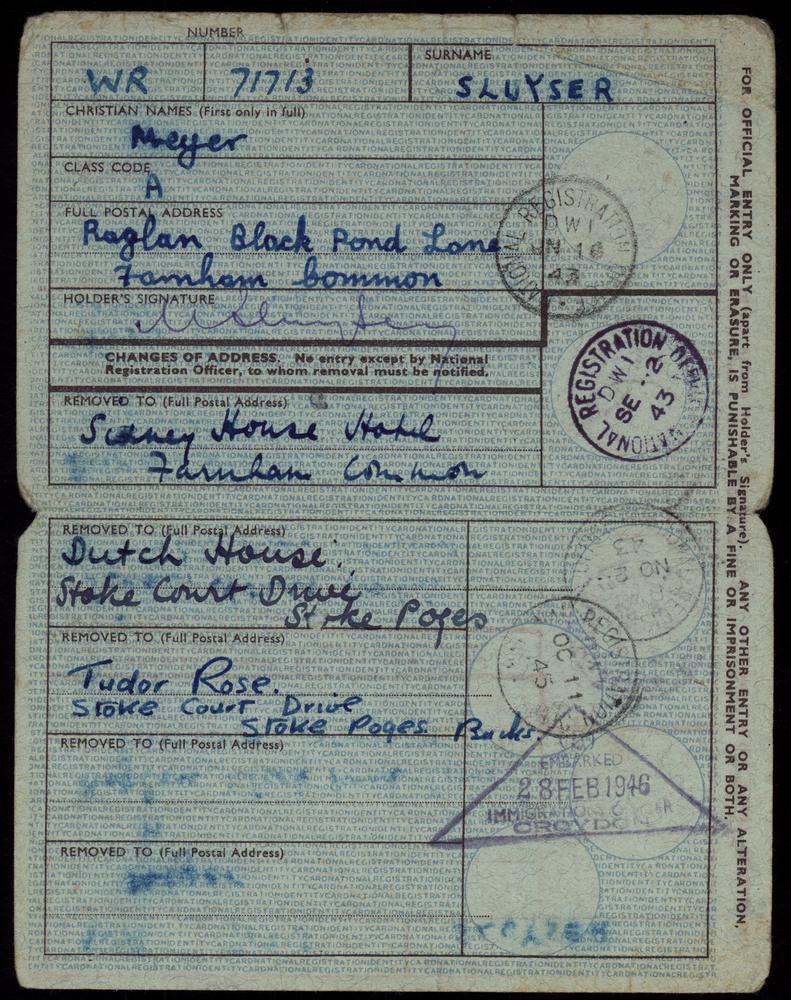 NUMBER
WR 71713
SURNAME
SLUYSER
CHRISTIAN NAMES (First only in full)
Meyer
CLASS CODE
A
FULL POSTAL ADDRESS
Raglan Black Pond Lane
Farnham Common
HOLDER'S SIGNATURE
CHANGES OF ADDRESS. No entry except by National
Registration Officer, to whom removal must be notified.
REMOVED TO (Full Postal Address)
Sidney House Hotel
Farnham Common
REMOVED TO (Full Postal Address)
Dutch House.
Stoke Court Drive
Stoke Poges
REMOVED TO (Full Postal Address)
Tudor Rose.
Stoke Court Drive
Stoke Poges Bucks.
REMOVED TO (Full Postal Address)
REMOVED TO (Full Postal Address)
NATIONAL REGISTRATION
DWI
16
43
NATIONAL REGISTRATION
DWI
SE -2
43
NO
43
REGISTRATION
OC 11
45
EMBARKED
28 FEB 1946
IMMIGRATION OFFICER
CROYDON
FOR OFFICIAL ENTRY ONLY (apart from Holder's Signature). ANY OTHER ENTRY OR ANY ALTERATION,
MARKING OR ERASURE, IS PUNISHABLE BY A FINE OR IMPRISONMENT OR BOTH.